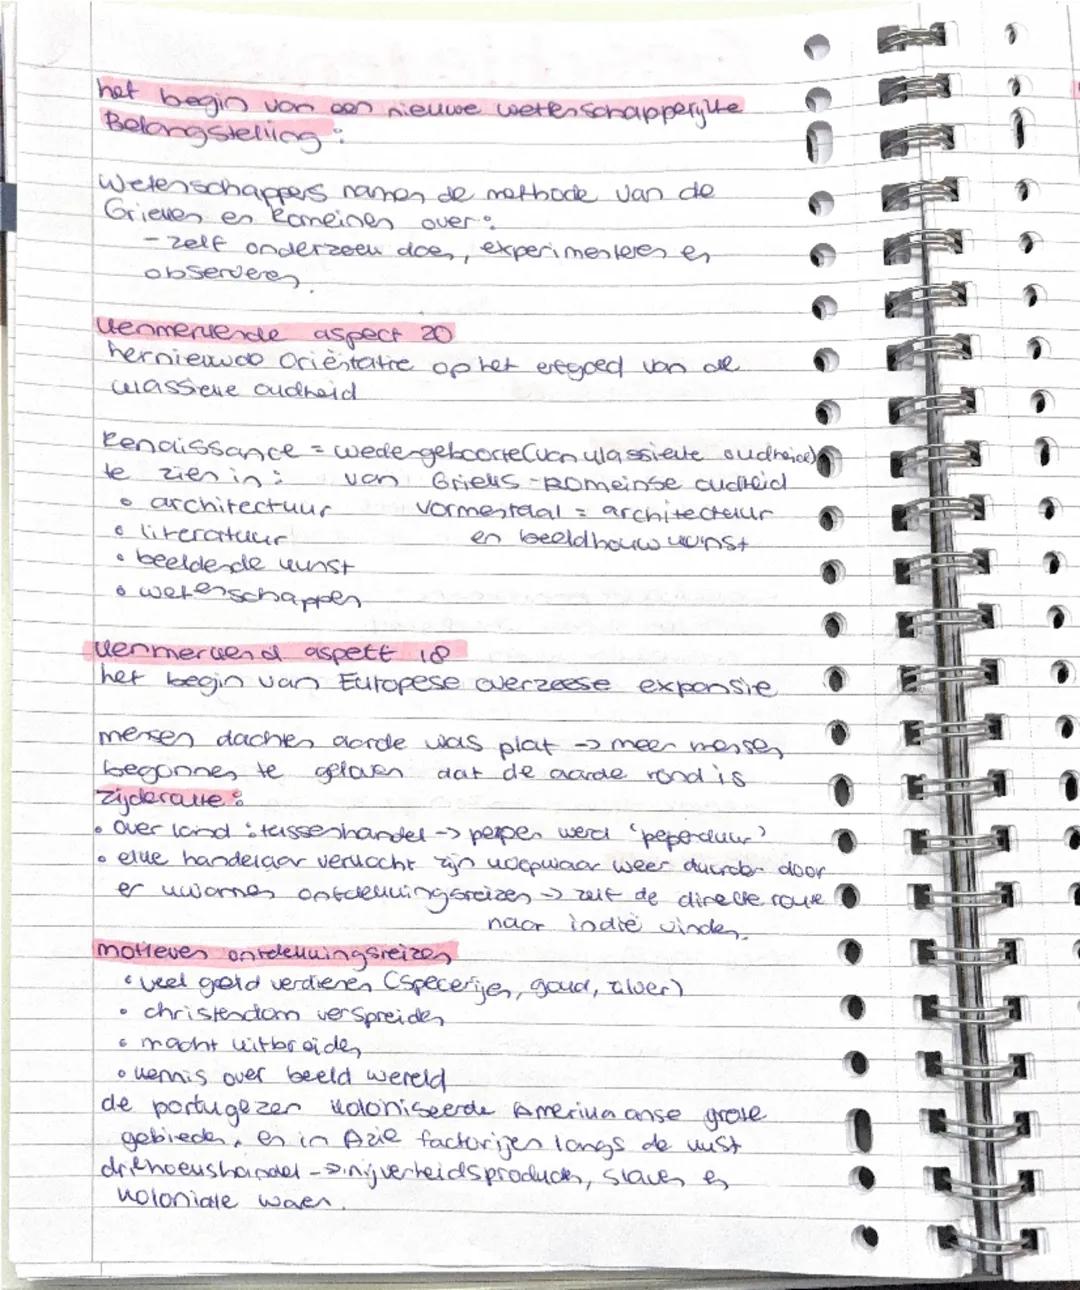 het begin van een nieuwe wetenschapperijke
Belangstelling:
Wetenschappers namen de methode van de
Grieken en Romeinen over:
- zelf onderzoek doen, experimenteren en
observeren.
kenmerkende aspect 20
hernieuwde Oriëntatie op het erfgoed van de
klassieke oudheid
Renaissance = wedergeboorte (van klassieke oudheid)
te zien in: van Grieks-Romeinse oudheid
• architectuur vormentaal = architectuur
• literatuur en beeldhouwkunst
• beeldende kunst
• wetenschappen
kenmerkend aspekt 18
het begin van Europese overzeese expansie
mensen dachten aarde was plat -> meer mensen
begonnen te geloven dat de aarde rond is
zijderoute:
• over land: tussenhandel -> peper werd 'peperduur'
• elke handelaar verkocht zijn koopwaar weer duurder door
er kwamen ontdekkingsreizen -> zelf de directe route
naar indië vinden.
motieven ontdekkingsreizen
• veel geld verdienen (specerijen, goud, zilver)
• christendom verspreiden
• macht uitbreiden
• kennis over beeld wereld
de portugezen koloniseerde Amerikaanse grote
gebieden, en in Azie factorijen langs de kust
driehoekshandel -> nijverheidsproducten, slaven en
koloniale waren.